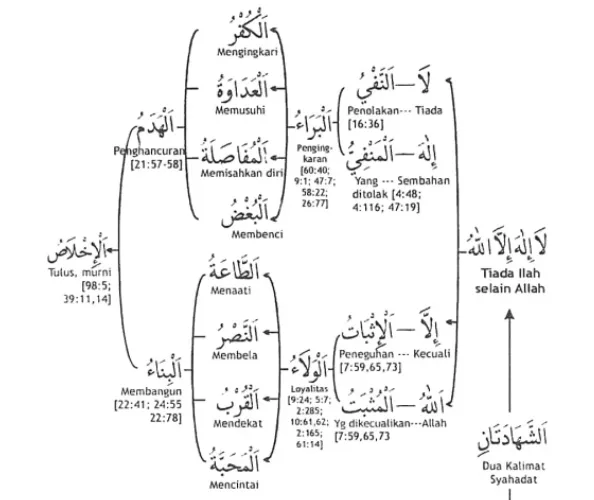 اَلْكُفْرُ
Mengingkari
اَلْعَدَاوَةُ
Memusuhi
اَلْمُفَاصَلَةُ
Memisahkan diri
اَلْبُغْضُ
Membenci
اَلْهَدَمُ
Penghancuran
[21:57-58]
اَلْبَرَاءُ
Penging-
karan
[60:40;
9:1; 47:7;
58:22;
26:77]
لَا — اَلنَّفْيُ
Penolakan--- Tiada
[16:36]
إِلٰهَ — اَلْمَنْفِيُّ
Yang --- Sembahan
ditolak [4:48;
4:116; 47:19]
اَلْإِخْلَاصُ
Tulus, murni
[98:5;
39:11,14]
لَا إِلٰهَ إِلَّا اللّٰهُ
Tiada Ilah
selain Allah
اَلطَّاعَةُ
Menaati
اَلنَّصْرُ
Membela
اَلْقُرْبُ
Mendekat
اَلْمَحَبَّةُ
Mencintai
اَلْبِنَاءُ
Membangun
[22:41; 24:55
22:78]
اَلْوَلَاءُ
Loyalitas
[9:24; 5:7;
2:285;
10:61,62;
2:165;
61:14]
إِلَّا — اَلْإِثْبَاتُ
Peneguhan --- Kecuali
[7:59,65,73]
اَللّٰهُ — اَلْمُثْبَتُ
Yg dikecualikan---Allah
[7:59,65,73
اَلشَّهَادَتَانِ
Dua Kalimat
Syahadat